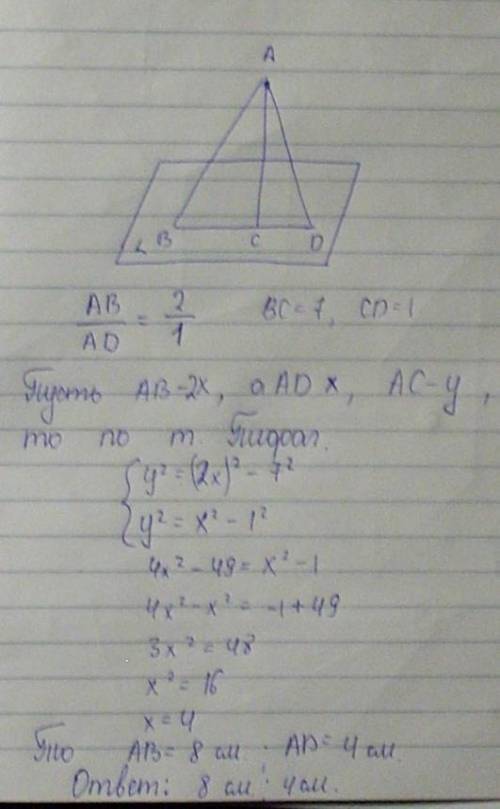 A
α B C D
AB/AD = 2/1 BC=7, CD=1
Пусть AB-2x, а AD x, AC-y,
то по т. Пифаг.
{ y² = (2x)² - 7²
y² = x² - 1²
4x² - 49 = x² - 1
4x² - x² = -1 + 49
3x² = 48
x² = 16
x = 4
AB = 8 см ; AD = 4 см.
Ответ: 8 см ; 4 см.